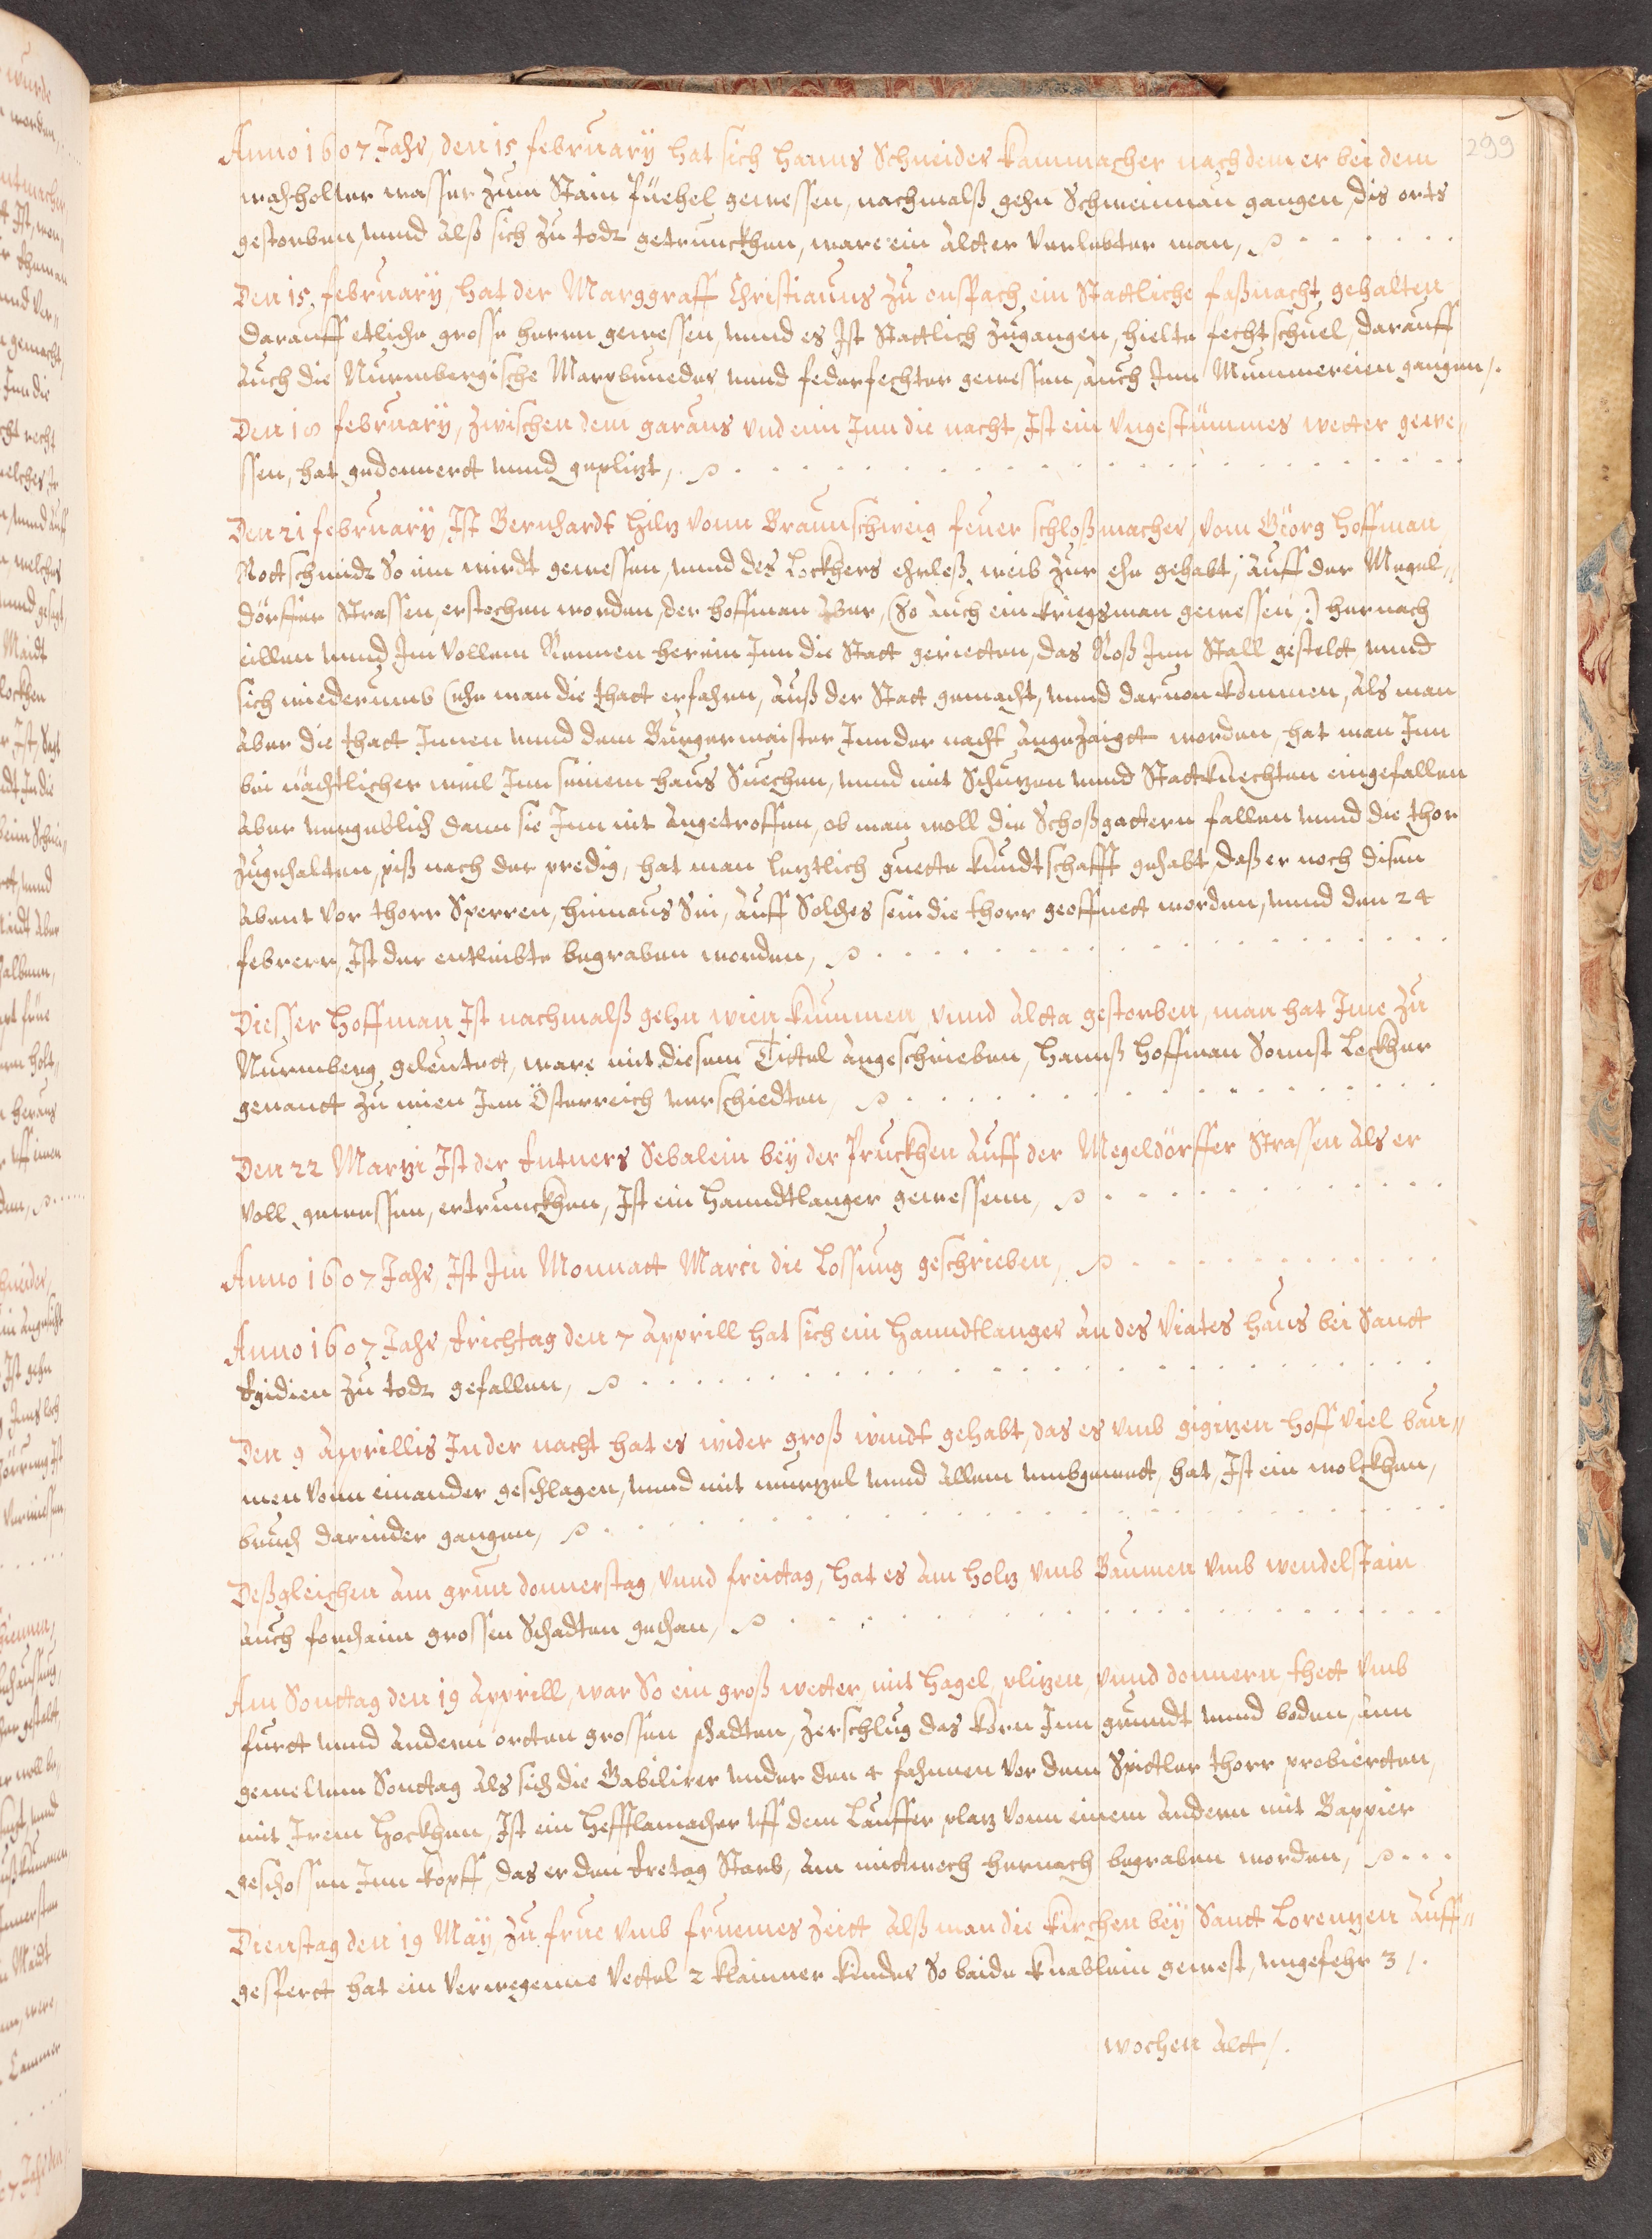 299
Anno 1607 Jahr, den 15 february hat sich hanns Schneider kammacher nachdem er bei dem
wachholter wasser zum Stain Püehel gewessen, nachmalß gehn Schweinnau gangen, dis orts
gestorben, unnd alß sich zu todt getrunckhen, ware ein alter verlebter man,
Den 15. february, hat der Marggraff Christianus zu onspach ein Stattliche faßnacht gehalten
darauff etliche grosse herrn gewessen, unnd es Ist Stattlich zugangen, hielte fechtschuel, darauff
auch die Nurmbergische Marxbrueder unnd federfechter gewessen, auch Inn Mummereien gangen /.
Den 18 february, zwischen dem garaus und ein Inn die nacht, Ist ein ungestümmes wetter gewe„
ssen, hat gedonnerdt unnd geplizt,
Den 21 february, Ist Bernhardt Hilz vonn Braunschweig feuer schloßmacher, vom Georg Hoffman
Rottschmidt So ein wirdt gewessen, unnd des Lockhers ehrloß weib zur ehe gehabt, auff der Megel„
dörffer Strassen, erstochen worden, der hoffman aber, (So auch ein kriegsman gewessen :) hernach
eillen unnd Im vollem Rennen herein Inn die Statt gerietten, das Roß Inn Stall gestelt, unnd
sich wiederumb (ehe man die thatt erfahren, auß der Statt gemacht, unnd daruon kommen, als man
aber die thatt Innen unnd dem Burgermaister Inn der nacht angezaigtt worden, hat man Inn
bei nächtlicher weil Inn seinem haus Suechen, unnd mit Schuzen unnd Stattknechten eingefallen
aber vergeblich dann sie Inn nit angetroffen, ob man woll die Schoßgattern fallen unnd die thor
zugehalten, piß nach der predig, hat man leztlich guette kundtschafft gehabt, daß er noch disen
abent vor thorr Sperren, hinnaus Sei, auff Solches sein die thorr geoffnett worden, unnd den 24
febrerr, Ist der entleibte begraben worden,
Diesser Hoffman Ist nachmalß gehn wien kummen unnd alda gestorben, man hat Ime zu
Nurmberg geleuttet, ware mit diesem Tittel angeschrieben, Hannß Hoffman Sonnst Lockher
genandt zu wien Inn Österreich verschiedten,
Den 22 Martzi Ist der Entners Sebalein bey der Pruckhen auff der Megeldörffer Strassen als er
voll gewessen, ertrunckhen, Ist ein Hanndtlanger gewessenn,
Anno 1607 Jahr, Ist Im Monnatt Marci die Lossung geschrieben,
Anno 1607 Jahr, Erichtag den 7 apprill hat sich ein Hanndtlanger an des Viates haus bei Sanct
Egidien zu todt gefallen,
Den 9 Apprillis In der nacht hat es wider groß windt gehabt, das es umb gigizen hoff viel bau„
men vonn einander geschlagen, unnd mit wurzel unnd allem umbgewect, hat, Ist ein wolckhen,
bruch darnider gangen,
Deßgleichen am grun donnerstag, unnd freittag, hat es am holz umb Baumen umb wendelstain
auch forchaim grossen Schadten gethan,
Am Sonttag den 19 apprill, war So ein groß wetter, mit hagel, plizen, unnd donnern, thett umb
furtt unnd andern ortten grossen schadten, zerschlug das korn Inn grundt unnd boden, ann
gemeltem Sonttag als sich die Gabilirer under den 4 fahnnen vor dem Spittler thorr probierten,
mit Irem Hockhen, Ist ein Hefftlamacher uff dem Lauffer plaz vonn einem andern mit Bappier
geschossen Inn kopff, das er den Eretag Starb, am mitwoch hernach begraben worden,
Dienstag den 19 May, zu frue umb fruemes zeitt alß man die kirchen bey Sanct Lorenzen auff„
gesperrt hat ein verwegenne Vettel 2 klainner kinder So beide knablein gewest, ungefehr 3 /.
wochen alt /.